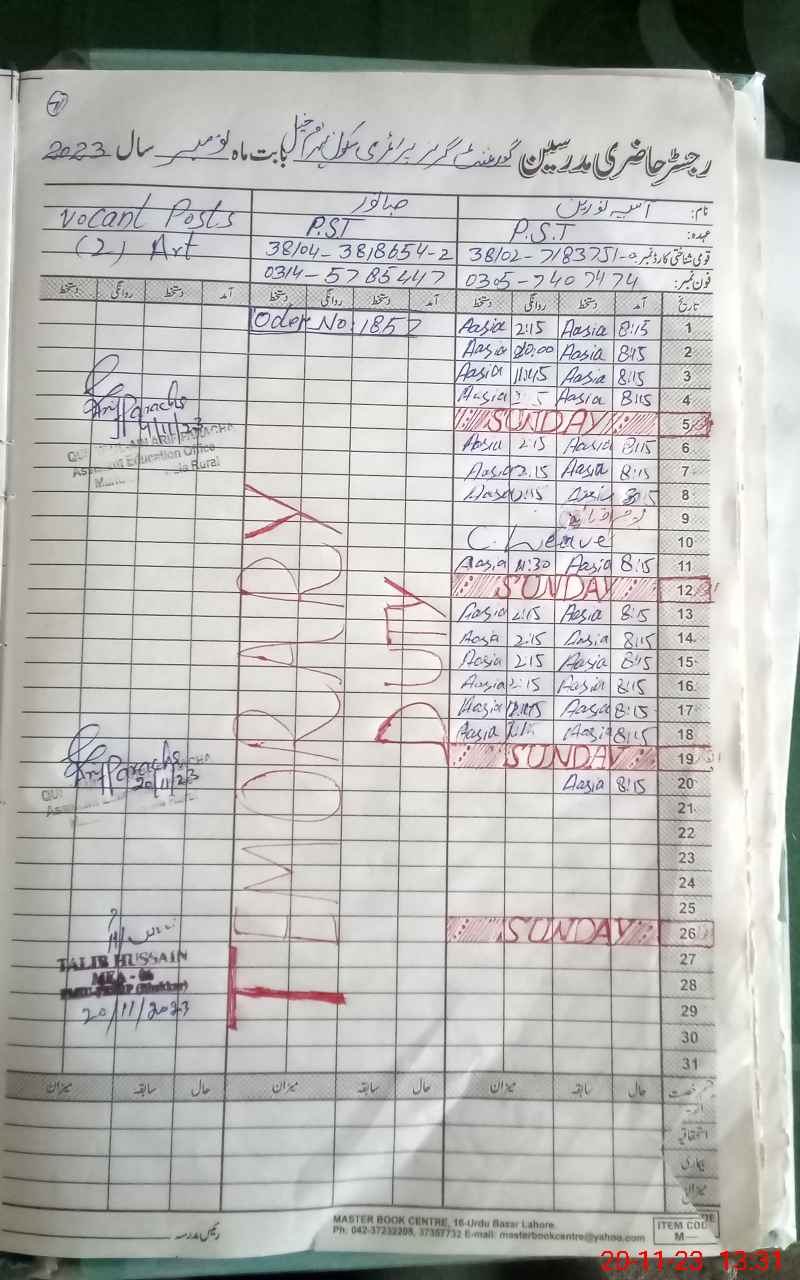 رجسٹر حاضری مدرسین گورنمنٹ گرلز پرائمری سکول بابت ماہ نومبر سال 2023
نام: آسیہ نورین صبا نور Vocant Posts
عہدہ: P.S.T P.ST (2) Art
قومی شناختی کارڈ نمبر: 38/02-7183751-0 38/04-3818654-2
فون نمبر: 0305-7407474 0314-5785447
تاریخ آمد دستخط روانگی دستخط آمد دستخط روانگی دستخط آمد دستخط روانگی دستخط
1 8:15 Aasia 2:15 Aasia Oder No: 1857
2 8:15 Aasia Aasia
3 8:15 Aasia 11:45 Aasia
4 8:15 Aasia Aasia
5 SUNDAY
6 8:15 Aasia 2:15 Aasia
7 8:15 Aasia 2:15 Aasia
8 Aasia 2:15 Aasia
9
10 C. Leave
11 8:15 Aasia 11:30 Aasia
12 SUNDAY
13 8:15 Aasia 2:15 Aasia
14 8:15 Aasia 2:15 Aasia
15 8:15 Aasia 2:15 Aasia
16 8:15 Aasia 2:15 Aasia
17 8:15 Aasia Aasia
18 8:15 Aasia Aasia
19 SUNDAY
20 8:15 Aasia
21
22
23
24
25
26 SUNDAY
27
28
29
30
31
TEMORARY
DUTY
Arif Paracha
9/11/23
Assistant Education Office
Rural
Arif Paracha
20/11/23
TALIB HUSSAIN
MEA - 06
20/11/2023
قسم رخصت حال سابقہ میزان حال سابقہ میزان حال سابقہ میزان
استحقاقیہ
بیماری
میزان
رئیس مدرسہ
MASTER BOOK CENTRE, 16-Urdu Bazar Lahore.
Ph: 042-37232208, 37357732 E-mail: masterbookcentre@yahoo.com
ITEM CODE
M—
20-11-23 13:31